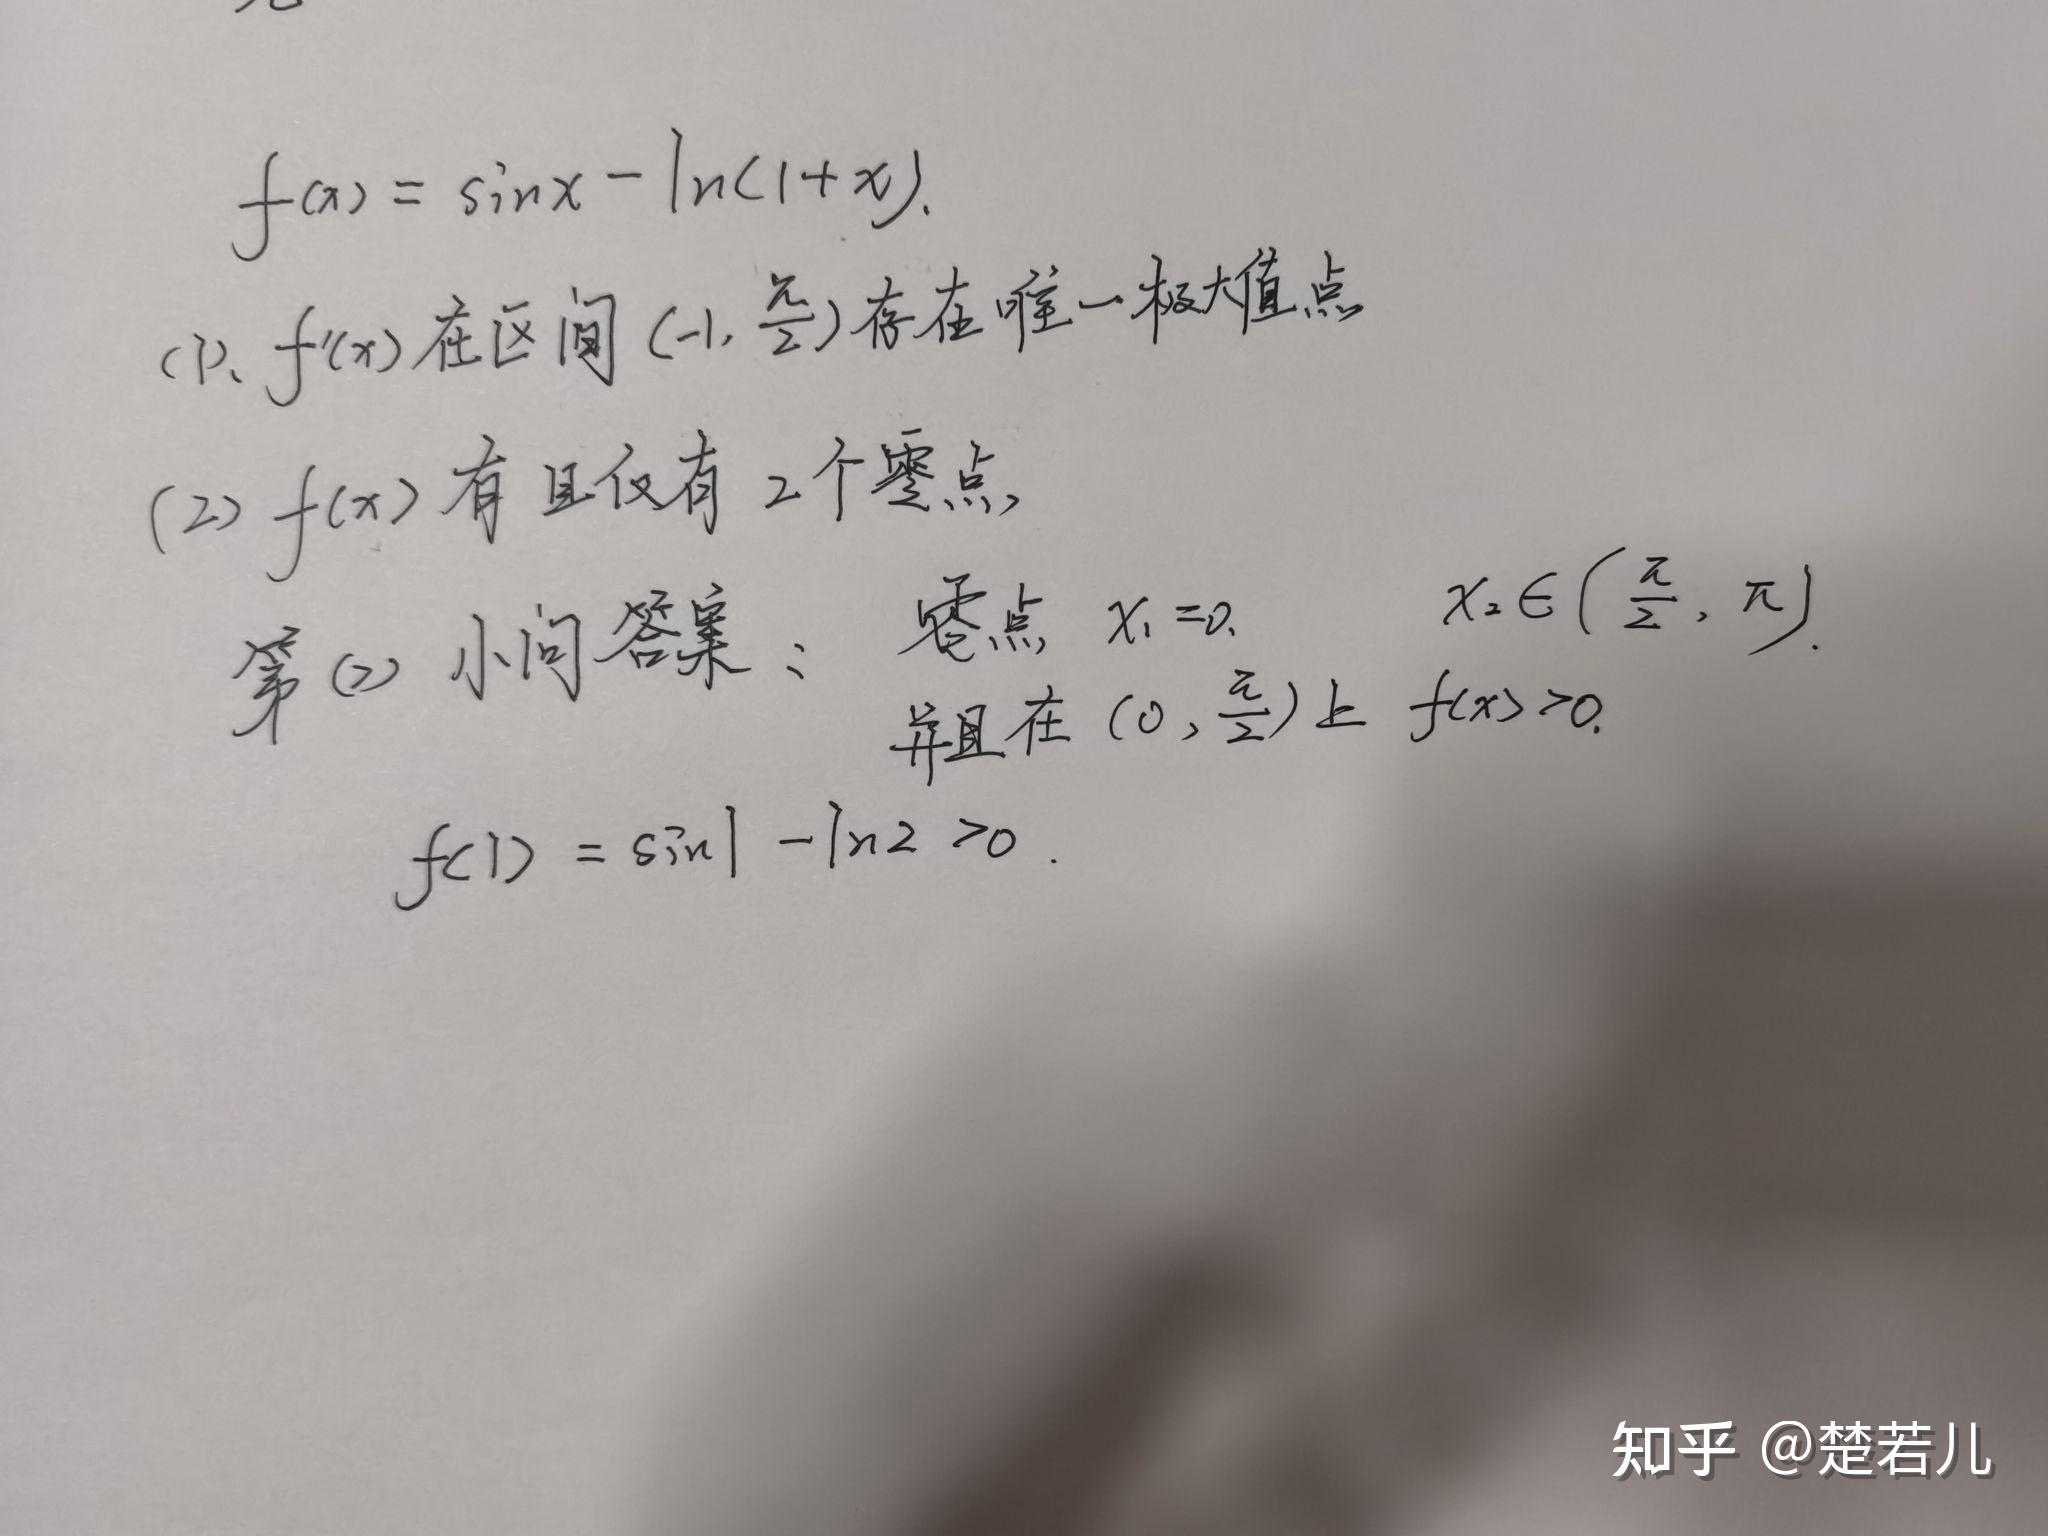 f(x) = sinx - ln(1+x).
(1)、f'(x) 在区间 (-1, π/2) 存在唯一极大值点
(2) f(x) 有且仅有 2个零点,
第(2) 小问答案: 零点 x₁=0. x₂∈(π/2, π).
并且在 (0, π/2) 上 f(x)>0.
f(1) = sin1 - ln2 >0.
知乎 @楚若儿